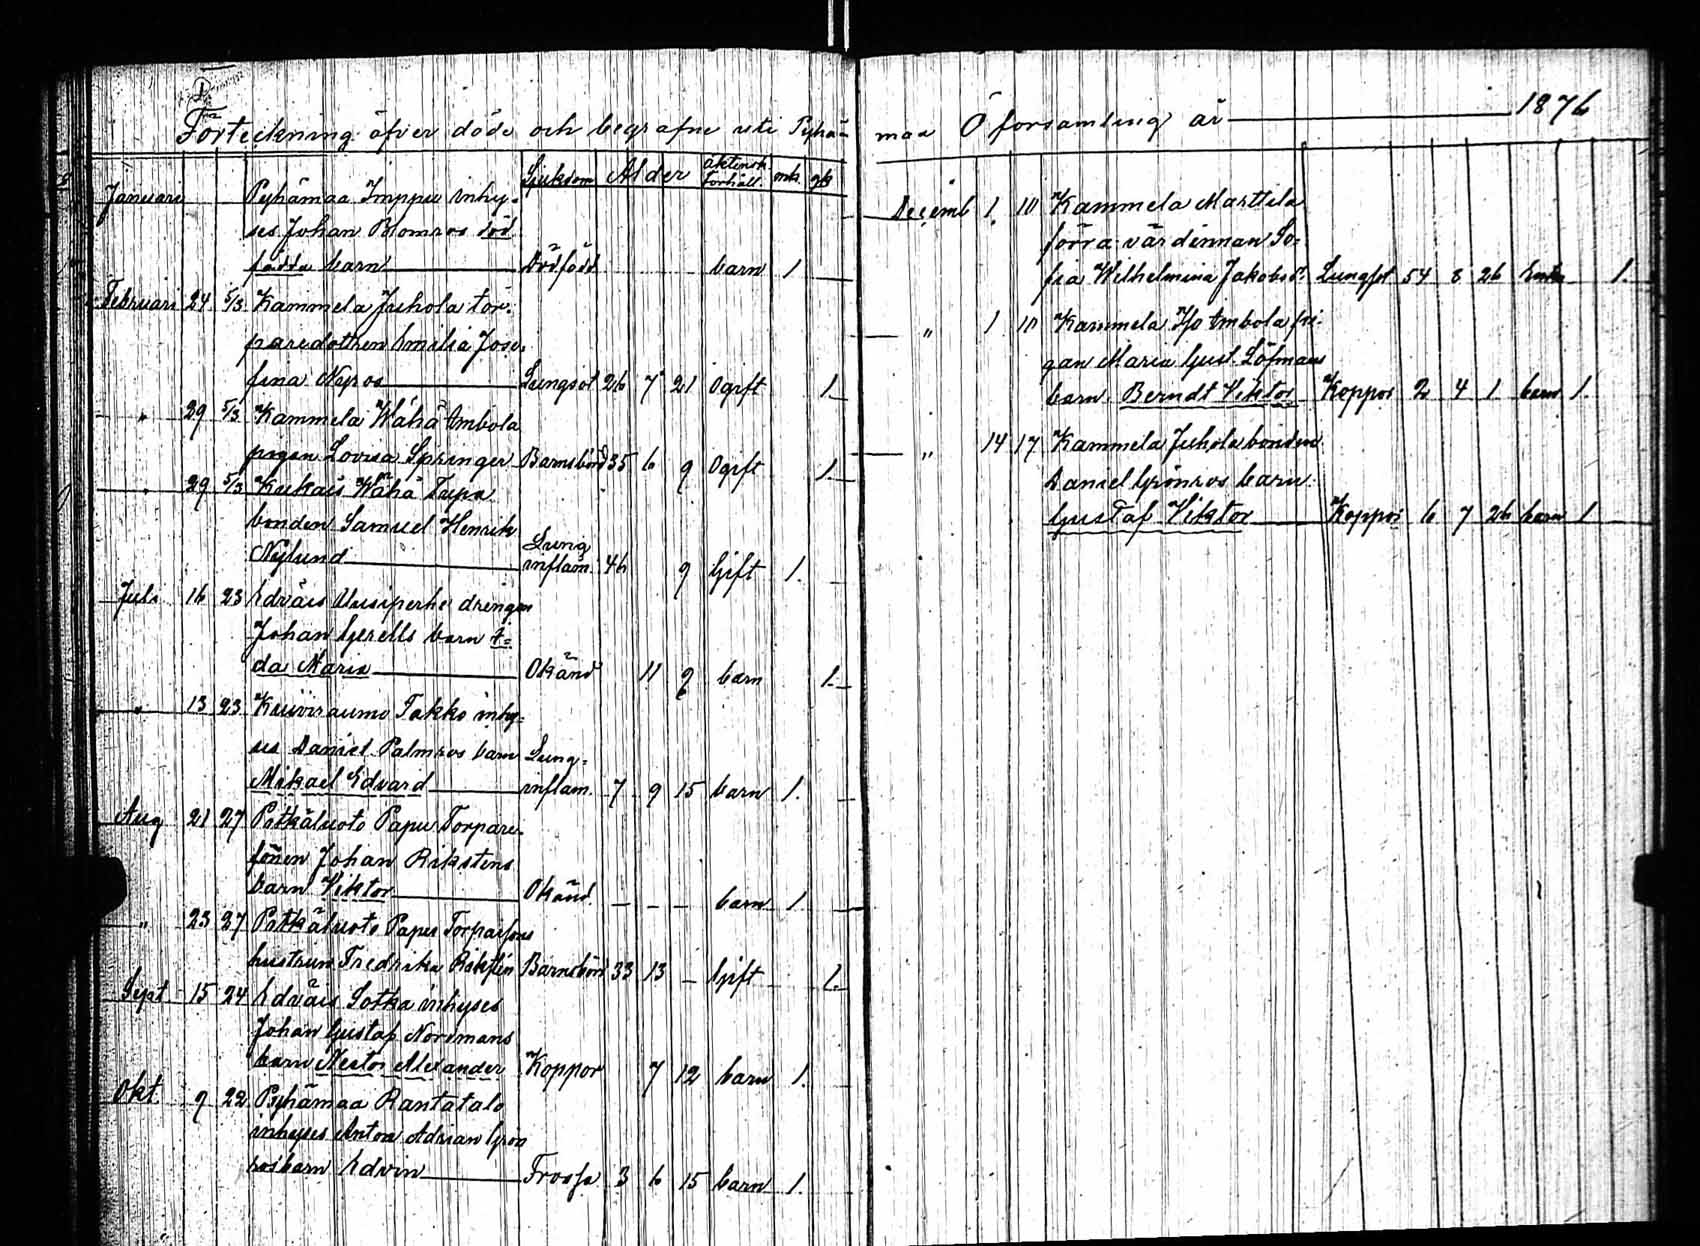 Förteckning öfver döde och begrafne uti Pyhä-
maa Ö församling år 1876
Sjukdom Ålder äktensk. förhåll. mk. qk
Januari Pyhämaa Imppu inhy-
ses Johan Blomros död
födda barn Dödfödd barn 1
Februari 24 5/3 Kammela Juhola tor-
paredottren Emilia Jose-
fina Nyros Lungsot 26 7 21 Ogift 1
" 29 5/3 Kammela Wähä Ambola
pigan Lovisa Springer Barnsbörd 35 6 9 Ogift 1
" 29 5/3 Kukais Wähä Tupa
bonden Samuel Henrik
Nylund Lung inflam. 46 9 Gift 1.
Juli 16 23 Edväis Uusiperhe drengen
Johan Gerells barn A-
da Maria Okänd 11 9 barn 1
" 13 23 Kuiviraumo Takko inhy-
ses Daniel Palmros barn Lung-
Mikael Edvard inflam. 7 9 15 barn 1.
Aug 21 27 Patkäluoto Papu Torpare-
sonen Johan Rikstens
barn Viktor Okänd. — — — barn 1
" 23 27 Patkäluoto Papu Torparsons
hustrun Fredrika Rikstén Barnsbörd 33 13 — Gift 1.
Sept 15 24 Edväis Sotka inhyses
Johan Gustaf Nordmans
barn Nestor Alexander Koppor 7 12 barn 1.
Okt. 9 22 Pyhämaa Rantatalo
inhyses Anton Adrian Grön
ros barn Edvin Frossa 3 6 15 barn 1.
Decemb 1. 10 Kammela Marttila
förra värdinnan So-
fia Wilhelmina Jakobsd. Lungsot 54 8 26 Enka 1.
" 1 10 Kammela Iso Ambola pi-
gan Maria Gust. Löfmans
barn Berndt Viktor Koppor 2 4 1 barn 1.
" 14 17 Kammela Juhola bonden
Daniel Grönros barn
Gustaf Viktor Koppor 6 7 26 barn 1